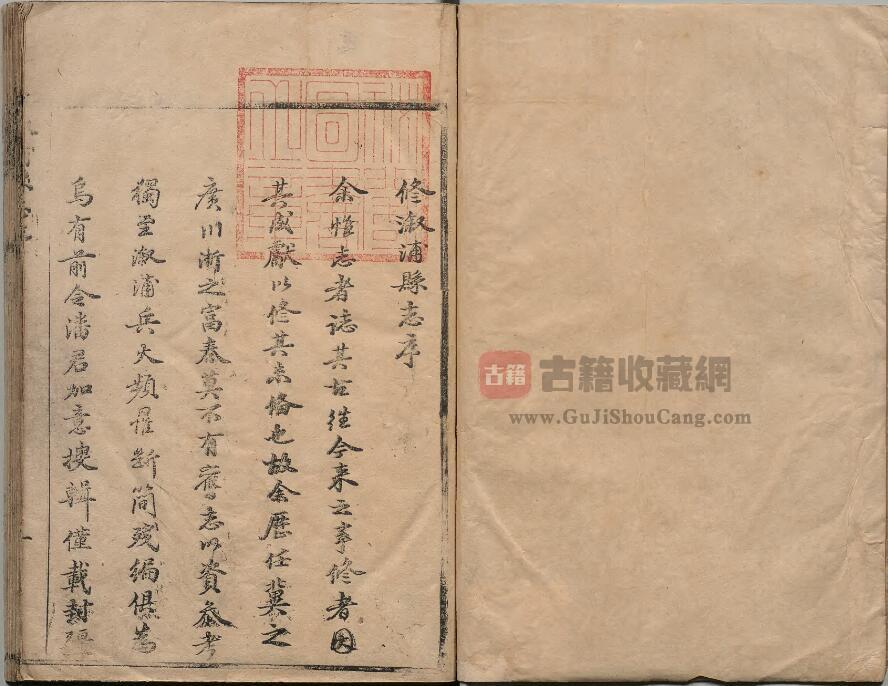 修溆浦縣志序
余惟志者誌其古往今来之事修者因
其成獻以修其未脩也故余歷任冀之
廣川浙之富春莫不有舊志以資叅考
獨至溆浦兵火頻罹断简残编俱為
烏有前令潘君加意搜輯僅載封疆
古籍
古籍收藏網
www.GuJiShouCang.com